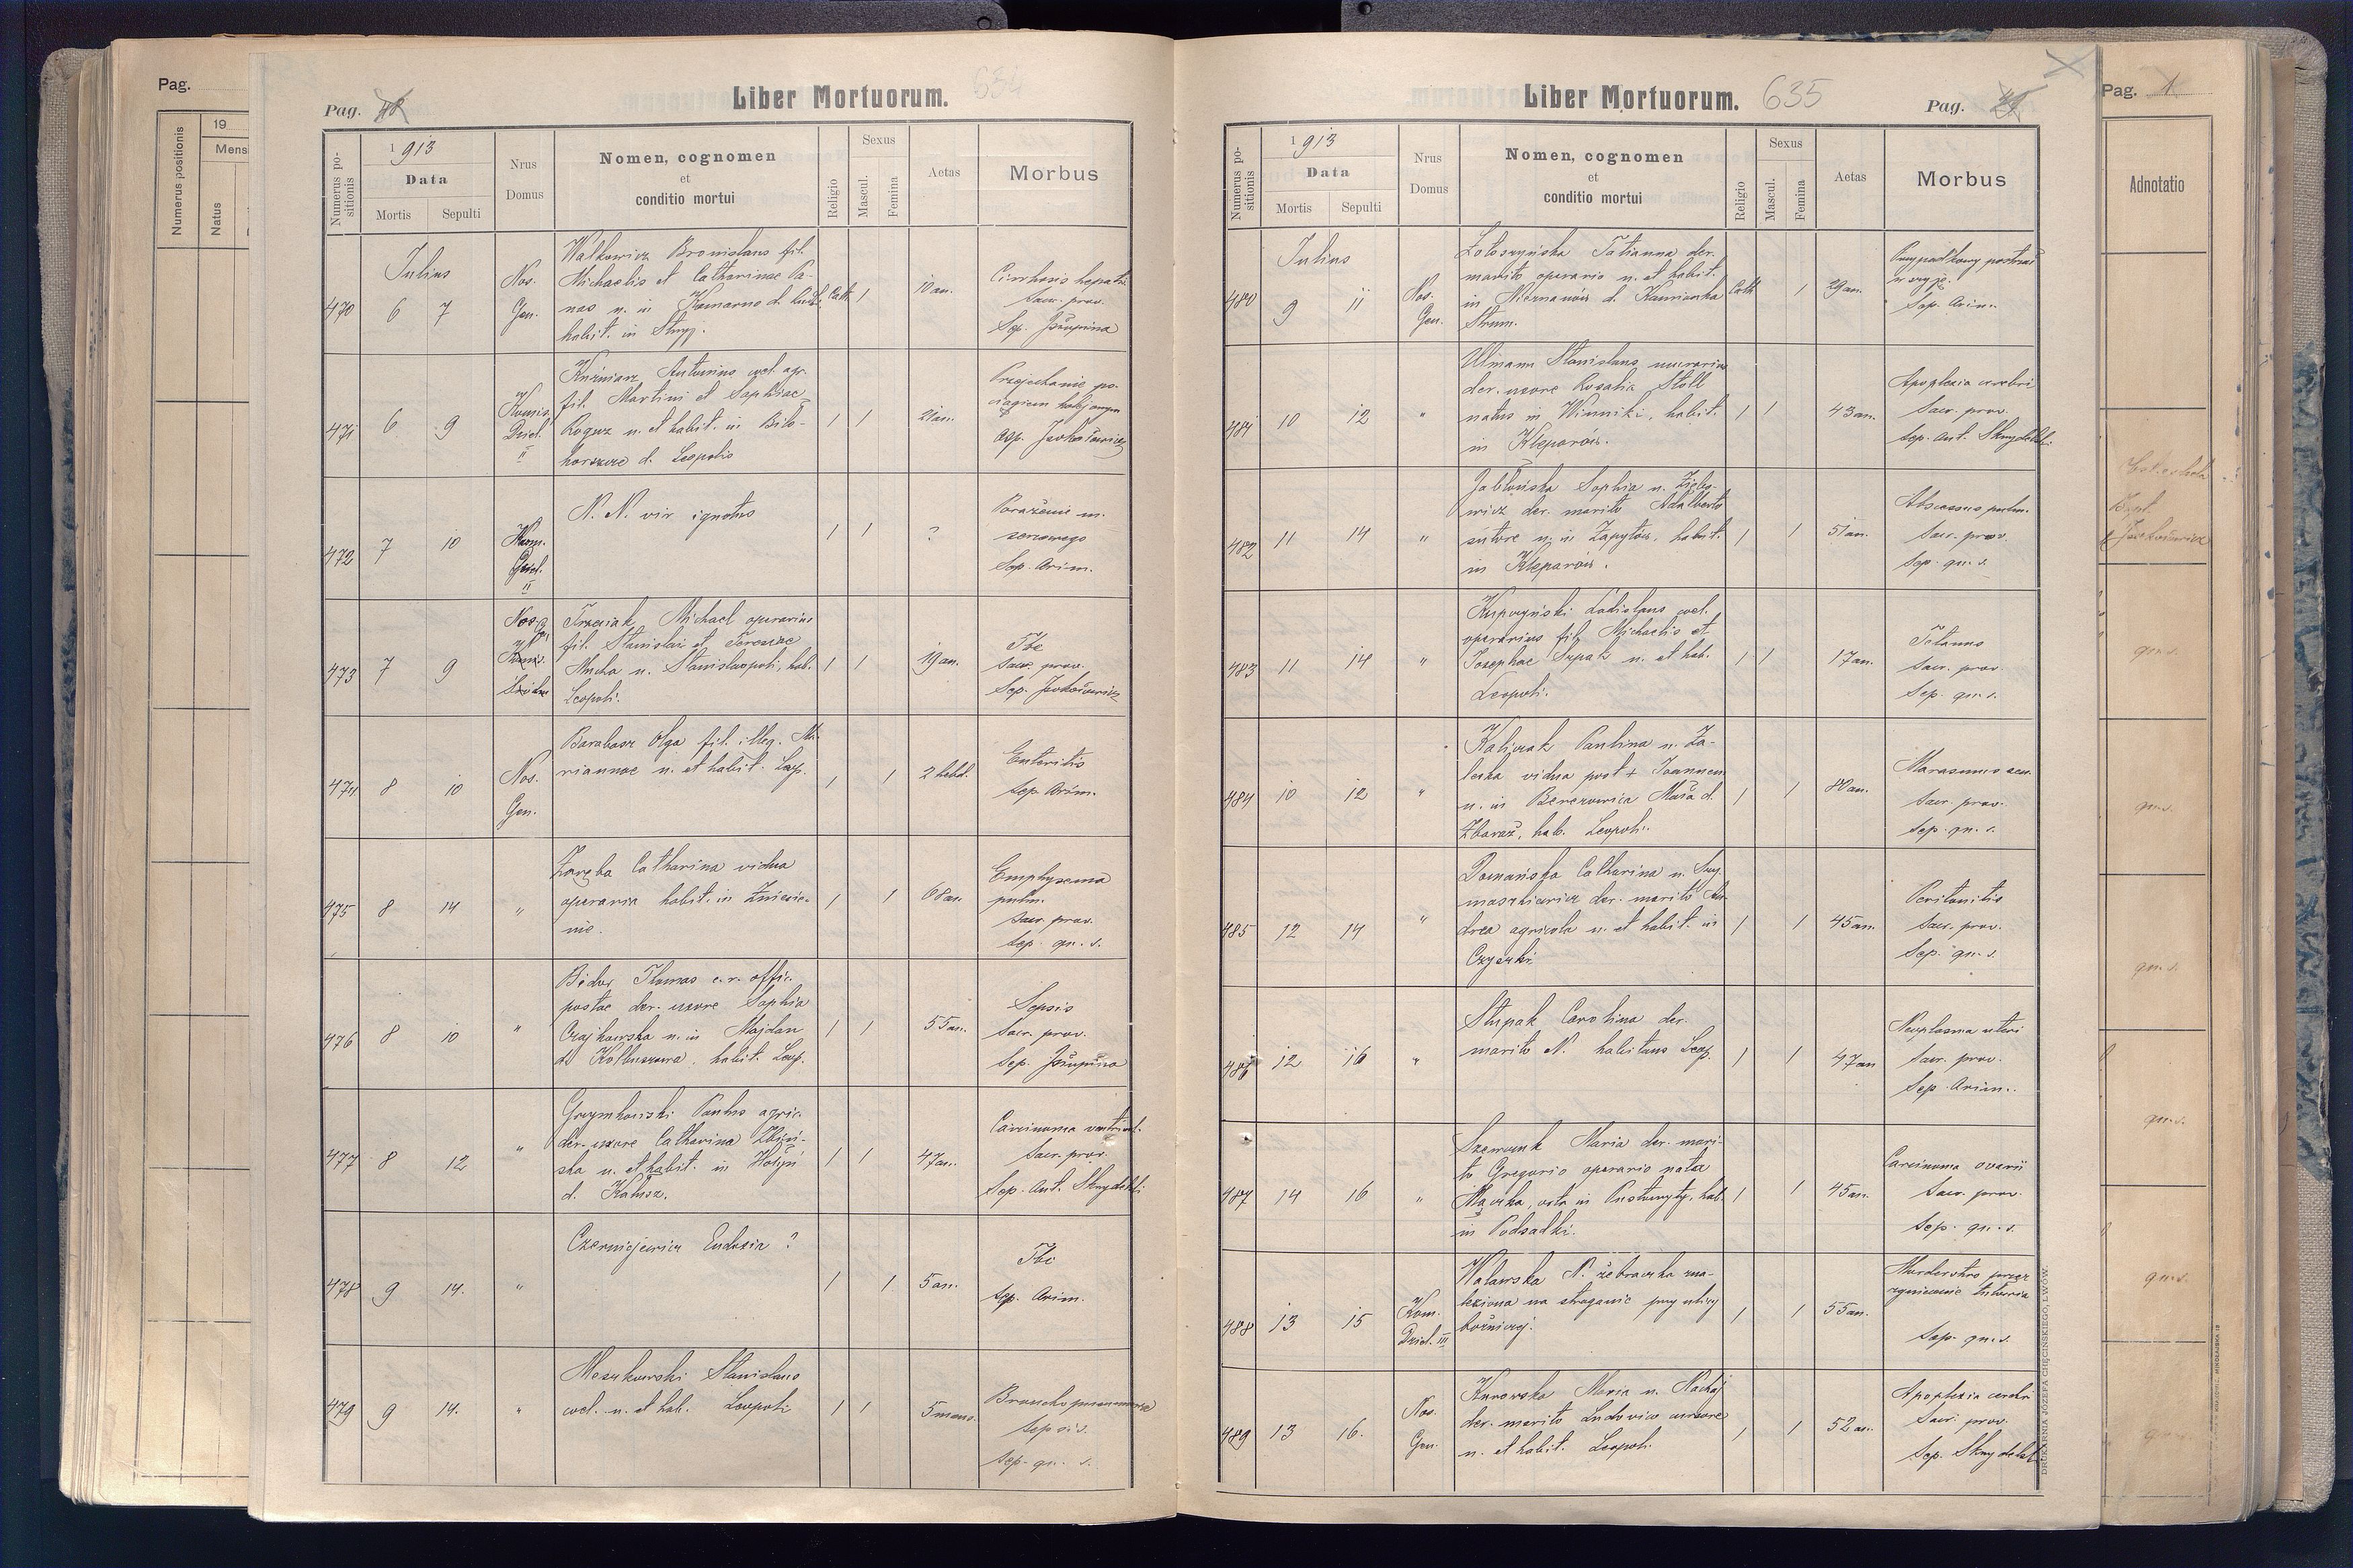 Pag.
19
Mens
Numerus positionis
Natus
Pag. 48
Liber Mortuorum.
634
Numerus positionis
1913
Data
Mortis
Sepulti
Nrus
Domus
Nomen, cognomen
et
conditio mortui
Religio
Sexus
Mascul.
Femina
Aetas
Morbus
Julius
470
6
7
Nos.
Gen.
Walkowicz Bronislaus fil.
Michaelis et Catharinae Pa-
nas n. in Komarno d. Rudki
habit. in Stryj.
Cath.
1
10 an.
Cirrhosis hepatis
Sacr. prov.
Sep. Pšupina
471
6
9
Komis.
Dziel.
II
Kuźniarz Antonius coel. agr.
fil. Martini et Sophiae
Rogusz n. et habit. in Biło-
horszcze d. Leopolis
1
1
21 an.
Przejechanie po-
ciągiem kolejowym
Sep.
472
7
10
Kom.
Dziel.
II
N. N. vir ignotus
1
1
?
Porażenie m.
sercowego
Sep. Arim.
473
7
9
Nos.
Trzeciak Michael operarius
fil. Stanislai et Teresiae
Mucha n. Stanislaopoli, hab.
Leopoli.
1
1
19 an.
Tbc
Sacr. prov.
Sep.
474
8
10
Nos.
Gen.
Barabasz Olga fil. illeg. Ma-
riannae n. et habit. Leop.
1
1
2 hebd.
Enteritis
Sep. Arim.
475
8
14
"
Zaręba Catharina vidua
operaria habit. in Zniesie-
nie.
1
1
68 an.
Emphysema
pulm.
Sacr. prov.
Sep. qu. s.
476
8
10
"
Bidor Thomas c. r. offic.
postae der. uxore Sophia
Czajkowska n. in Majdan
d. Kolbuszowa, habit. Leop.
1
1
55 an.
Sepsis
Sacr. prov.
Sep. Pšupina
477
8
12
"
Grzymkowski Paulus agric.
der. uxore Catharina Zbiń-
ska n. et habit. in Hołyń
d. Kałusz.
1
1
47 an.
Carcinoma ventricul.
Sacr. prov.
Sep. Ant. Skrzydelski
478
9
14.
"
Czerniejewicz Eudoxia ?
1
1
5 an.
Tbc
Sep. Arim.
479
9
14.
"
Meszkowski Stanislaus
coel. n. et hab. Leopoli
1
1
5 mens.
Bronchopneumonia
Sepsis.
Sep. qu. s.
Liber Mortuorum.
635
Pag.
Numerus positionis
1913
Data
Mortis
Sepulti
Nrus
Domus
Nomen, cognomen
et
conditio mortui
Religio
Sexus
Mascul.
Femina
Aetas
Morbus
Julius
480
9
11
Nos.
Gen.
Zołoszyńska Tatianna der.
marito operario n. et habit.
in d. Kamionka
Strum.
Cath
1
29 an.
Przypadkowy postrzał
w szyję.
Sep. Arim.
481
10
12
"
Ulmann Stanislaus murarius
der. uxore Rosalia Stoll
natus in Winniki, habit.
in Kleparów.
1
1
43 an.
Apoplexia cerebri
Sacr. prov.
Sep. Ant. Skrzydelski
482
11
14
"
Jabłońska Sophia n.
der. marito Adalberto
sutore n. in Zapytów, habit.
in Kleparów.
1
1
51 an.
Abscessus pulm.
Sacr. prov.
Sep. qu. s.
483
11
14
"
Kupczyński Ladislaus coel.
operarius fil. Michaelis et
Josephae n. et hab.
Leopoli.
1
1
17 an.
Tetanus
Sacr. prov.
Sep. qu. s.
484
10
12
"
Kaliczak Paulina n. Za-
leska vidua post + Joannem
n. in Berezowica Mała d.
Zbaraż, hab. Leopoli.
1
1
80 an.
Marasmus sen.
Sacr. prov.
Sep. qu. s.
485
12
14
"
Domańska Catharina n. Szy-
maszkiewicz der. marito An-
drea agricola n. et habit. in
Czyszki
1
1
45 an.
Peritonitis
Sacr. prov.
Sep. qu. s.
486
12
16
"
Słupak Carolina der.
marito N. habitans Leop.
1
1
47 an
Neoplasma uteri
Sacr. prov.
Sep. Arim.
487
14
16
"
Szewczuk Maria der. mari-
to Gregorio operario nata
orta in Pustomyty, hab.
in Podsadki.
1
1
45 an.
Carcinoma ovarii
Sacr. prov.
Sep. qu. s.
488
13
15
Kom.
Dziel. III
Walawska N. żebraczka zna-
leziona na straganie przy ulicy
bożniczej.
1
1
55 an.
Morderstwo przez
Sep. qu. s.
489
13
16.
Nos.
Gen.
Kurowska Maria n. Nachaj
der. marito Ludovico
n. et habit. Leopoli.
1
1
52 an.
Apoplexia cerebri
Sacr. prov.
Sep. Skrzydelski
DRUKARNIA JÓZEFA CHĘCIŃSKIEGO, LWÓW.
Pag. 1
Adnotatio
qu. s.
qu. s.
qu. s.
qu. s.
qu. s.